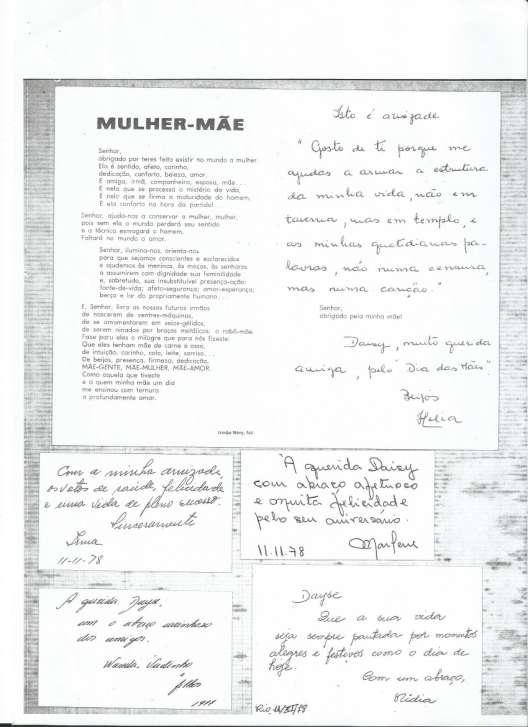 MULHER-MÃE
Senhor,
obrigado por teres feito existir no mundo a mulher.
Ela é sentido, afeto, carinho,
dedicação, conforto, beleza, amor.
É amiga, irmã, companheira, esposa, mãe...
É nela que se processa o mistério da vida.
É nela que se firma a maturidade do homem.
É ela conforto na hora da partida!
Senhor, ajuda-nos a conservar a mulher, mulher,
pois sem ela o mundo perderá seu sentido
e a técnica esmagará o homem.
Faltará no mundo o amor.
Senhor, ilumina-nos, orienta-nos
para que sejamos conscientes e esclarecidos
e ajudemos às meninas, às moças, às senhoras
a assumirem com dignidade sua feminilidade
e, sobretudo, sua insubstituível presença-ação:
fonte-de-vida; afeto-segurança; amor-esperança;
berço e lar do propriamente humano...
E, Senhor, livra os nossos futuros irmãos
de nascerem de ventres-máquinas,
de se amamentarem em seios-gélidos,
de serem ninados por braços metálicos: o robô-mãe.
Faze para eles o milagre que para nós fizeste:
Que eles tenham mãe de carne e osso,
de intuição, carinho, colo, leite, sorriso...
De beijos, presença, firmeza, dedicação.
MÃE-GENTE, MÃE-MULHER, MÃE-AMOR.
Como aquela que tiveste
e a quem minha mãe um dia
me ensinou com ternura
a profundamente amar.
Irmão Nery, fsc
Isto é amizade
"Gosto de ti porque me
ajudas a armar a estrutura
da minha vida, não em
taverna, mas em templo, e
as minhas quotidianas pa-
lavras, não numa censura,
mas numa canção."
Senhor,
obrigado pela minha mãe!
Daisy, muito querida
amiga, pelo "Dia das Mães"
Beijos
Helia
Com a minha amizade,
os votos de saúde, felicidade
e uma vida de pleno sucesso.
Sinceramente
Irma
11-11-78
"À querida Daisy
com abraço afetuoso
e muita felicidade
pelo seu aniversário.
11.11.78
Marlene
À querida Dayse,
com o abraço carinhoso
dos amigos.
Wanda,
e filhos
1978
Dayse
Que a sua vida
seja sempre pautada por momentos
alegres e festivos como o dia de
hoje.
Com um abraço,
Nidia
Rio, 11/XI/78